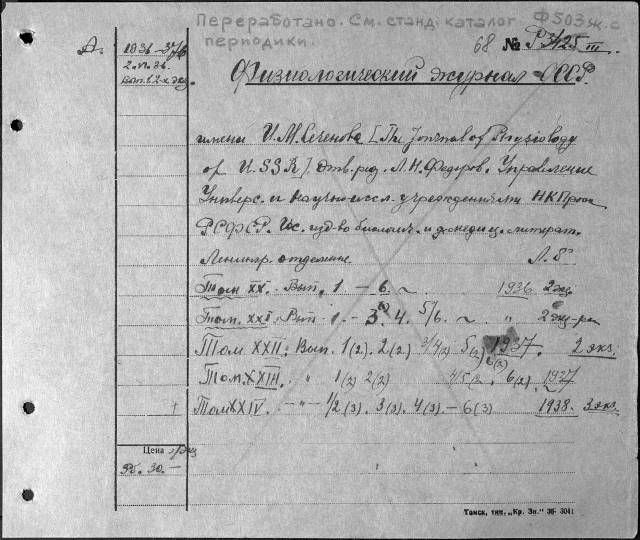 Переработано. См. станд. каталог Ф503ж.с
периодики.
А.
1936-37/6
2.п.эк.
вып. в 2-х экз.
68 № Р 3/25 III
Физиологический журнал СССР
имени И.М. Сеченова [The Journal of Physiology
of USSR]. Отв. ред. Л.Н. Федоров. Управление
Универс. и научно-иссл. учреждениями НКПрос
РСФСР. Гос. изд-во биологич. и медиц. литерат.
Ленингр. отделение. Л. 8°
Том XX. Вып. 1 — 6 ~ 1936 2 экз.
Том. XXI. Вып. 1. — 3. 4. 5/6. ~ " 2 экз-ра
Том XXII. Вып. 1(2). 2(2) 3/4(2) 5(2) 6(2) 1937. 2 экз.
Том XXIII. " 1(2) 2(2) 4/5(2) 6(2) 1937
Том XXIV. —"— 1/2(3). 3(3). 4(3) — 6(3) 1938. 3 экз.
Цена
Рб. 30.—
Томск, тип. „Кр. Зн." 36- 3041